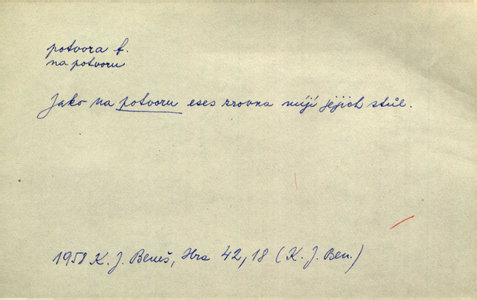 potvora f.
na potvoru
Jako na potvoru eses zrovna míjí jejich stůl.
1958 K. J. Beneš, Hra 42, 18 (K. J. Ben.)